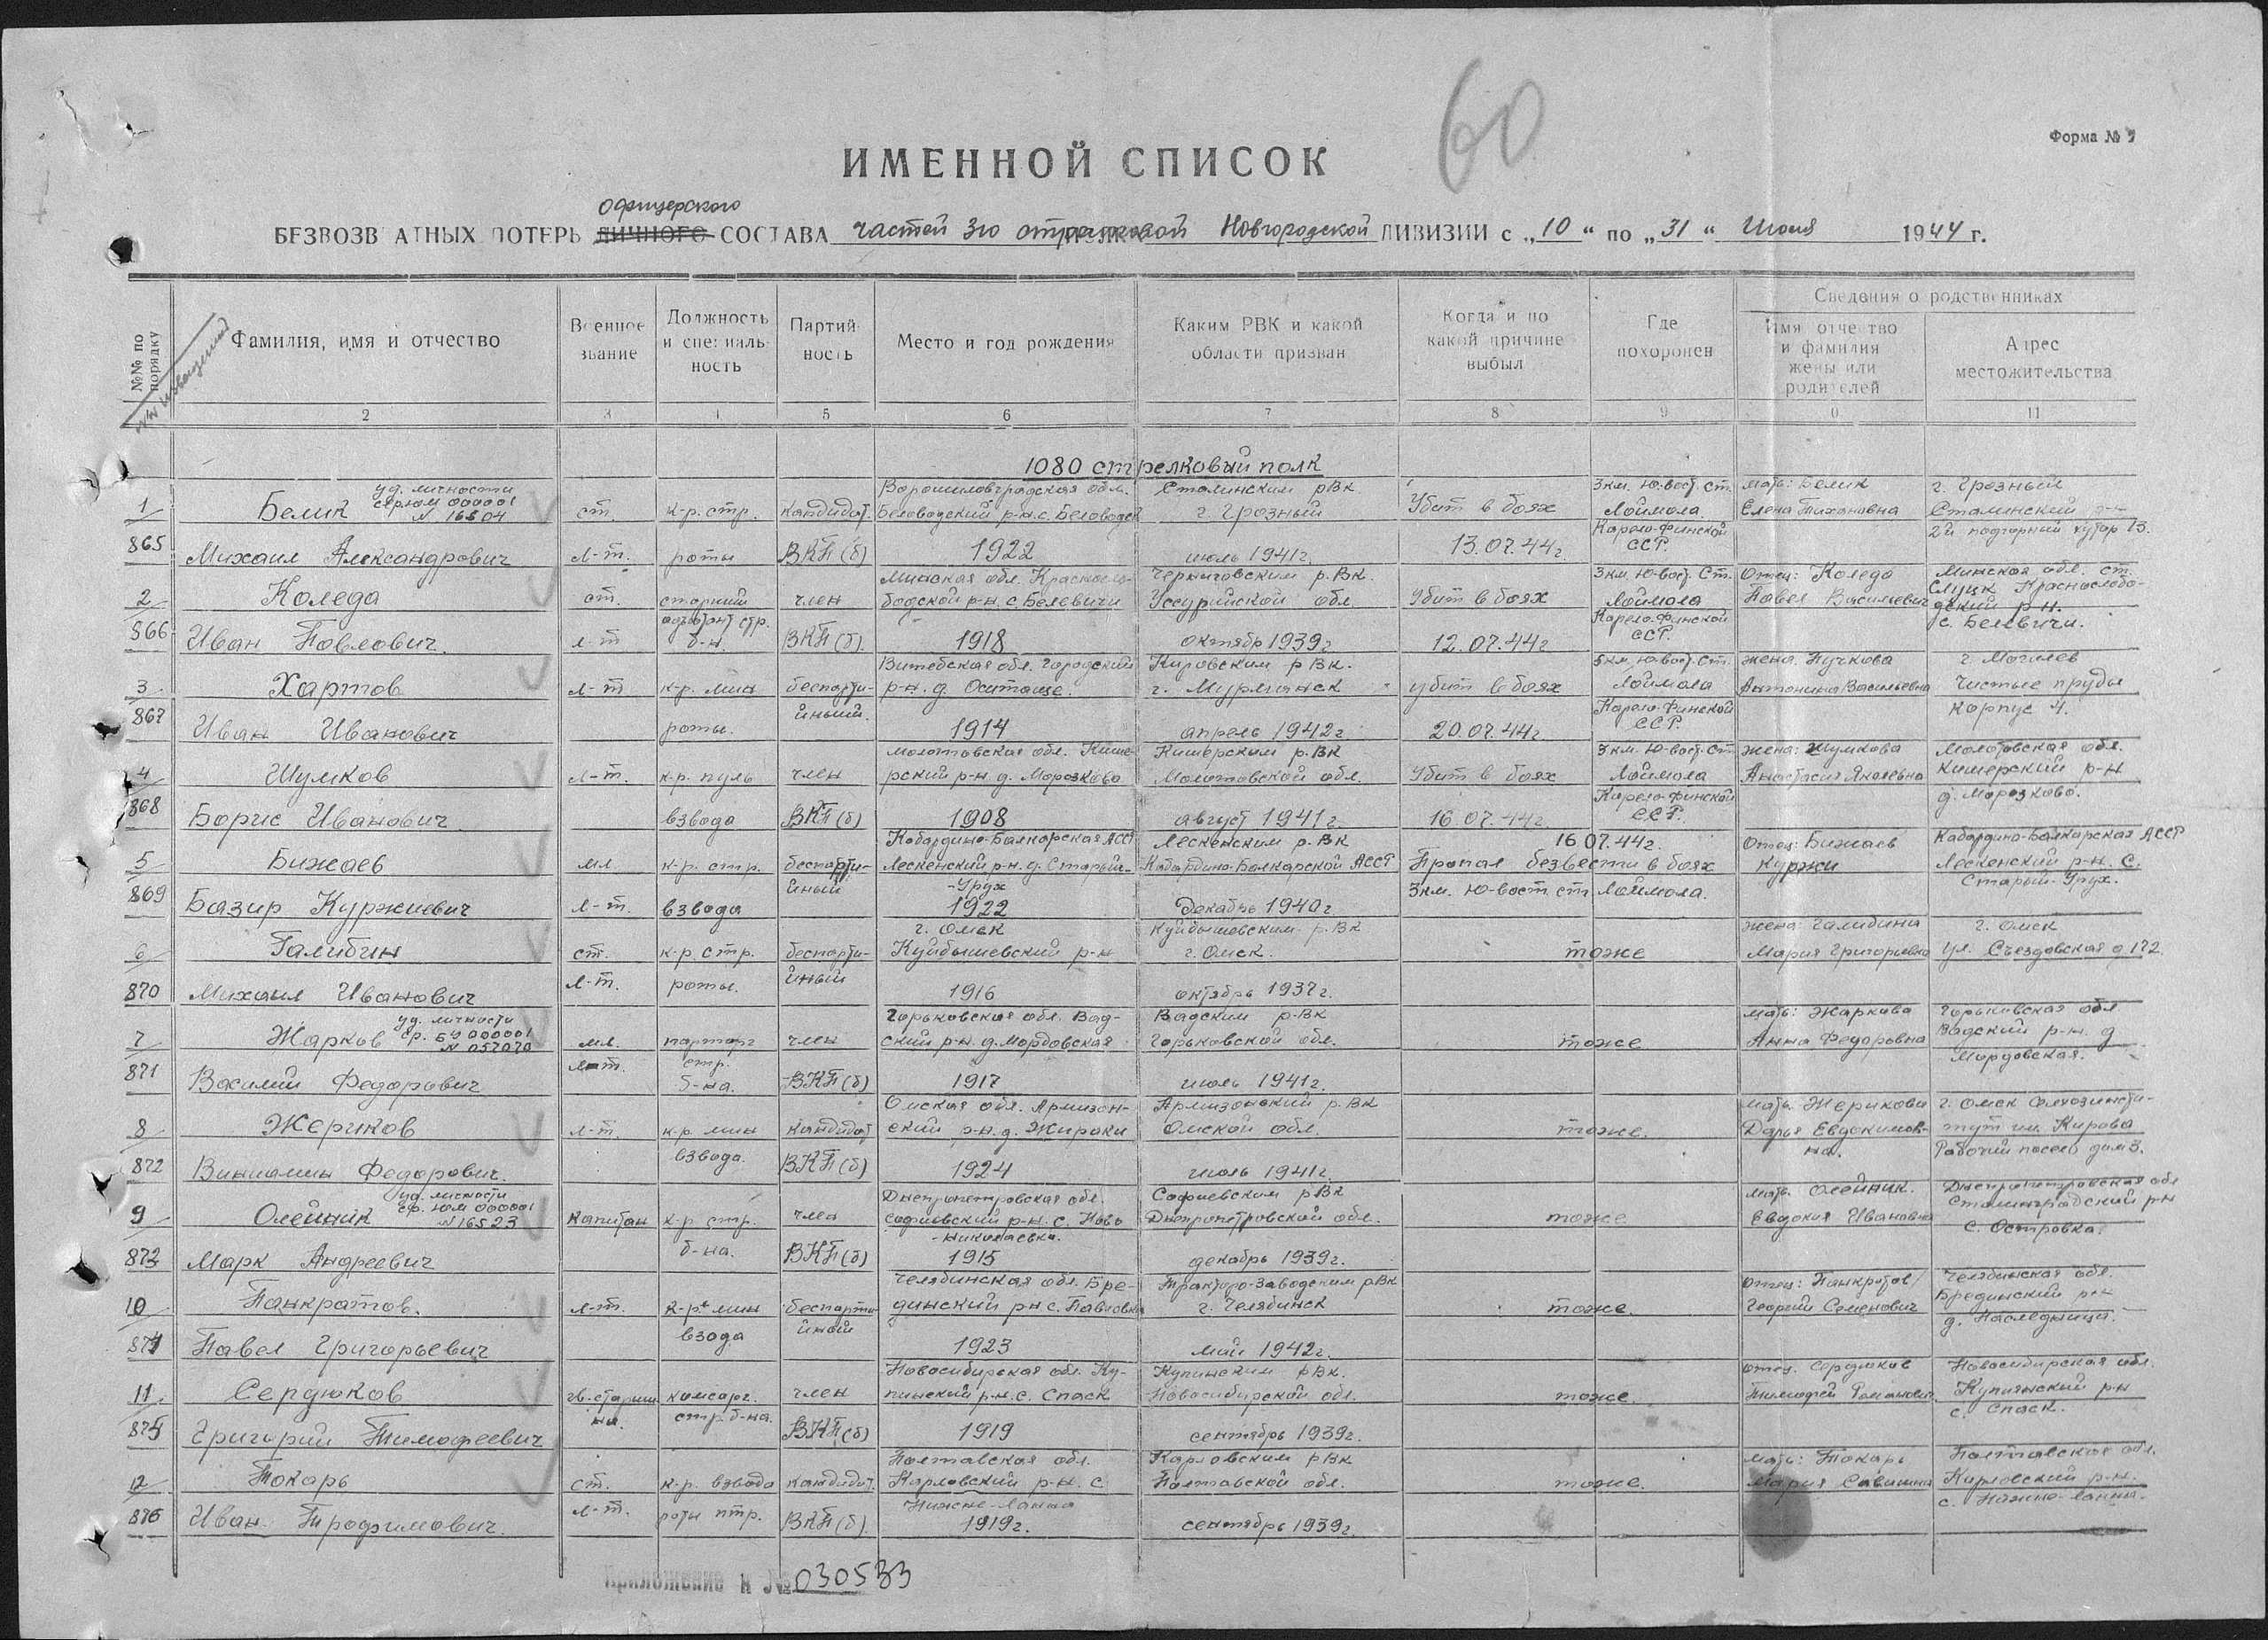 60
Форма №
ИМЕННОЙ СПИСОК
офицерского
БЕЗВОЗВ АТНЫХ ПОТЕРЬ ЛИЧНОГО СОСТАВА частей 310 стрелковой Новгородской ДИВИЗИИ с „10“ по „31“ Июля 1944 г.
№№ по порядку
№№ извещений
Фамилия, имя и отчество
Военное звание
Должность и специальность
Партийность
Место и год рождения
Каким РВК и какой области призван
Когда и по какой причине выбыл
Где похоронен
Сведения о родственниках
Имя отчество и фамилия жены или родителей
Адрес местожительства
2 3 4 5 6 7 8 9 10 11
1080 стрелковый полк
1 865 Белик Михаил Александрович уд. личности серЮМ 000001 № 16504 ст. л-т. к-р. стр. роты кандидат ВКП(б) Ворошиловградская обл. Беловодский р-н. с. Беловодск 1922 Сталинским рВк г. Грозный июль 1941г. Убит в боях 13.07.44г. 3км. Ю-вост. ст. Лоймола Карело-Финской ССР. мать: Белик Елена Тихановна г. Грозный Сталинский р-н 2й подгорный хутор 13.
2 866 Коледа Иван Павлович. ст. л-т старший адъютант стр. б-н. член ВКП(б). Минская обл. Краснослободской р-н. с. Белевичи 1918 Черниговским р.Вк. Уссурийской обл. октябрь 1939г Убит в боях 12.07.44г 3км. Ю-вост. Ст. Лоймола Карело-Финской ССР. Отец: Коледа Павел Васильевич Минская обл. ст. Слуцк Краснослободский р-н. с. Белевичи.
3 867 Хартов Иван Иванович л-т к-р. мин роты. беспартийный. Витебская обл. Городский р-н. д. 1914 Кировским рВк. г. Мурманск апрель 1942г убит в боях 20.07.44г. 5км. Ю-вост. ст. Лоймола Карело-Финской ССР. жена. Пучкова Антонина Васильевна г. Могилев Чистые пруды корпус 4.
4 868 Шумков Борис Иванович. л-т. к-р. пуль взвода член ВКП(б) Молотовская обл. Кишерский р-н д. Морозково 1908 Кишерским р.Вк Молотовской обл. август 1941г. Убит в боях 16.07.44г. 3км. Ю-вост. ст Лоймола Карело-Финской ССР. жена: Шумкова Анастасия Яковлевна Молотовская обл. Кишерский р-н д. Морозково.
5 869 Бижаев Базир Куржиевич мл л-т. к-р. стр. взвода беспартийный Кабардино-Балкарская АССР Лескенский р-н. д. Старый-Урух 1922 Лескенским р.Вк Кабардино-Балкарской АССР декабрь 1940г 16 07.44г. Пропал безвести в боях 3км. Ю-вост. ст Лоймола. Отец: Бижаев Куржи Кабардино-Балкарская АССР Лескенский р-н. С. Старый-Урух.
6 870 Галибин Михаил Иванович ст. л-т. к-р. стр. роты. беспартийный г. Омск Куйбышевский р-н 1916 Куйбышевским р.Вк г. Омск. октябрь 1937г. тоже жена: Галибина Мария Григорьевна г. Омск ул. Съездовская д 172.
7 871 Жарков Василий Федорович уд. личности ср. БУ 000001 № 057070 мл. л-т. парторг стр. б-на. член ВКП(б) Горьковская обл. Вадский р-н. д. Мордовская 1917 Вадским р-Вк Горьковской обл. июль 1941г. тоже мать: Жаркова Анна Федоровна Горьковская обл Вадский р-н. д Мордовская.
8 872 Жериков Виниамин Федорович. л-т. к-р. мин взвода. кандидат ВКП(б) Омская обл. Армизонский р-н. д. Жираки 1924 Армизонский р.Вк Омской обл. июль 1941г тоже. мать. Жерикова Дарья Евдокимовна. г. Омск Сельхозинститут им. Кирова Рабочий поселок дом 3.
9 873 Олейник Марк Андреевич уд. личности ср. ЮМ 000001 №16523 капитан к-р. стр. б-на. член ВКП(б) Днепропетровская обл. Софиевский р-н. с. Ново-Николаевка. 1915 Софиевским рВк Днепропетровской обл. декабрь 1939г. тоже мать. Олейник. Евдокия Ивановна Днепропетровская обл Сталинградский р-н с. Островка.
10 874 Панкратов. Павел Григорьевич л-т. к-р мин взода беспартийный Челябинская обл. Брединский р-н с. Павловка 1923 Тракторо-Заводским рВк г. Челябинск май 1942г. тоже. отец: Панкратов Георгий Семенович Челябинская обл. Брединский р-н д. Наследница.
11 875 Сердюков Григорий Тимофеевич гв. старшина. комсорг. стр. б-на. член ВКП(б) Новосибирская обл. Купинский р-н. с. Спаск 1919 Купинским рВк. Новосибирской обл. сентябрь 1939г. тоже. отец. Сердюков Тимофей Романович Новосибирская обл. Купинский р-н с. Спаск.
12 876 Токарь Иван Трофимович. ст. л-т. к-р. взвода роты птр. кандидат. ВКП(б). Полтавская обл. Карловский р-н. с Нижне-Ланна 1919г. Карловским рВк Полтавской обл. сентябрь 1939г. тоже. мать: Токарь Мария Савишна Полтавская обл. Карловский р-н. с. Нижне-Ланна.
Приложение к № 030533